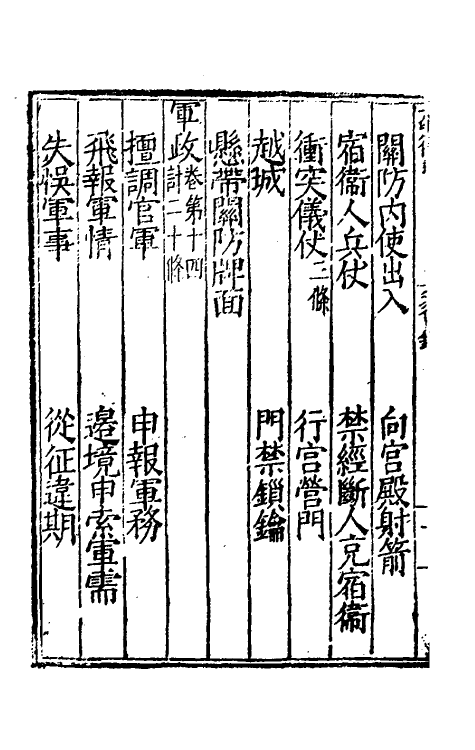 關防内使出入　向宮殿射箭
宿衞人兵仗　禁經斷人充宿衞
衝突儀仗二條　行宮營門
越城　門禁鎖鑰
懸帶關防牌面
軍政卷第十四計二十條
擅調官軍　申報軍務
飛報軍情　邊境申索軍需
失悞軍事　從征違期